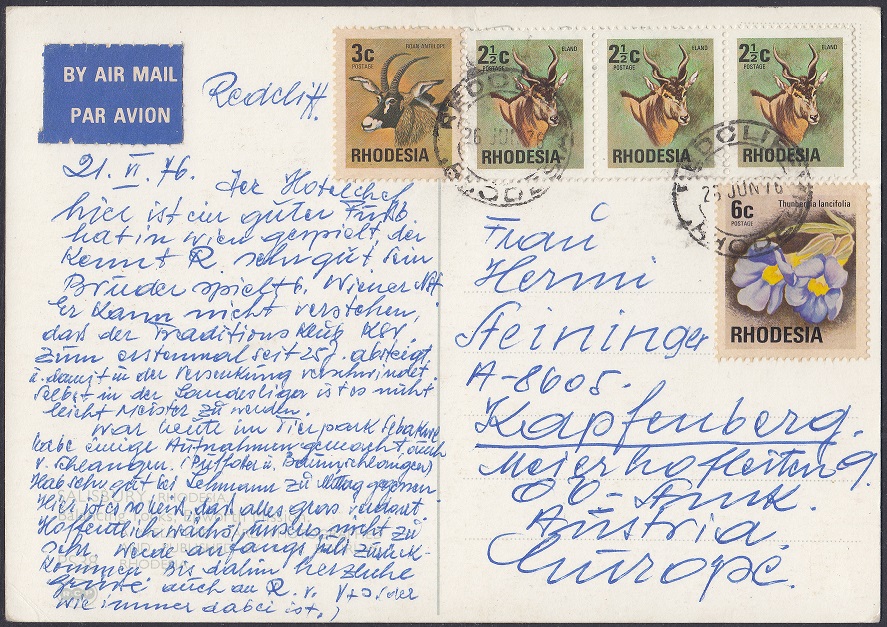 BY AIR MAIL
PAR AVION
Redcliff.
3c
POSTAGE
ROAN ANTELOPE
RHODESIA
2½c
POSTAGE
ELAND
RHODESIA
2½c
POSTAGE
ELAND
RHODESIA
2½c
POSTAGE
ELAND
RHODESIA
REDCLIFF
26 JUN 76
RHODESIA
REDCLIFF
JUN 76
RHODESIA
6c
POSTAGE
Thunbergia lancifolia
RHODESIA
21. VI. 76. Der Hotelchef
hier ist ein guter
hat in Wien gespielt, der
kennt R. sehr gut, sein
Bruder spielt b. Wiener
Er kann nicht verstehen,
das der Traditionsklub KSV.
zum erstenmal seit 25 J. absteigt.
u. damit in der Versenkung verschwindet.
Selbst in der Landesliga ist es nicht
leicht Meister zu werden.
War heute im Tierpark
habe einige Aufnahmen gemacht, auch
v. Schlangen. (Puffotter u. Baumschlangen)
Hab sehr gut bei Lehmann zu Mittag gegessen.
Hier ist es so das alles gras
Hoffentlich wächst nicht zu
sehr. Werde anfangs Juli zurück-
kommen bis dahin herzliche
Grüße auch an R. v.
wie immer dabei ist.)
SALISBURY, RHODESIA
RHODESIA
Frau
Hermi
Steininger
A-8605.
Kapfenberg.
Meierhofleiten 9.
Austria.
Europe.